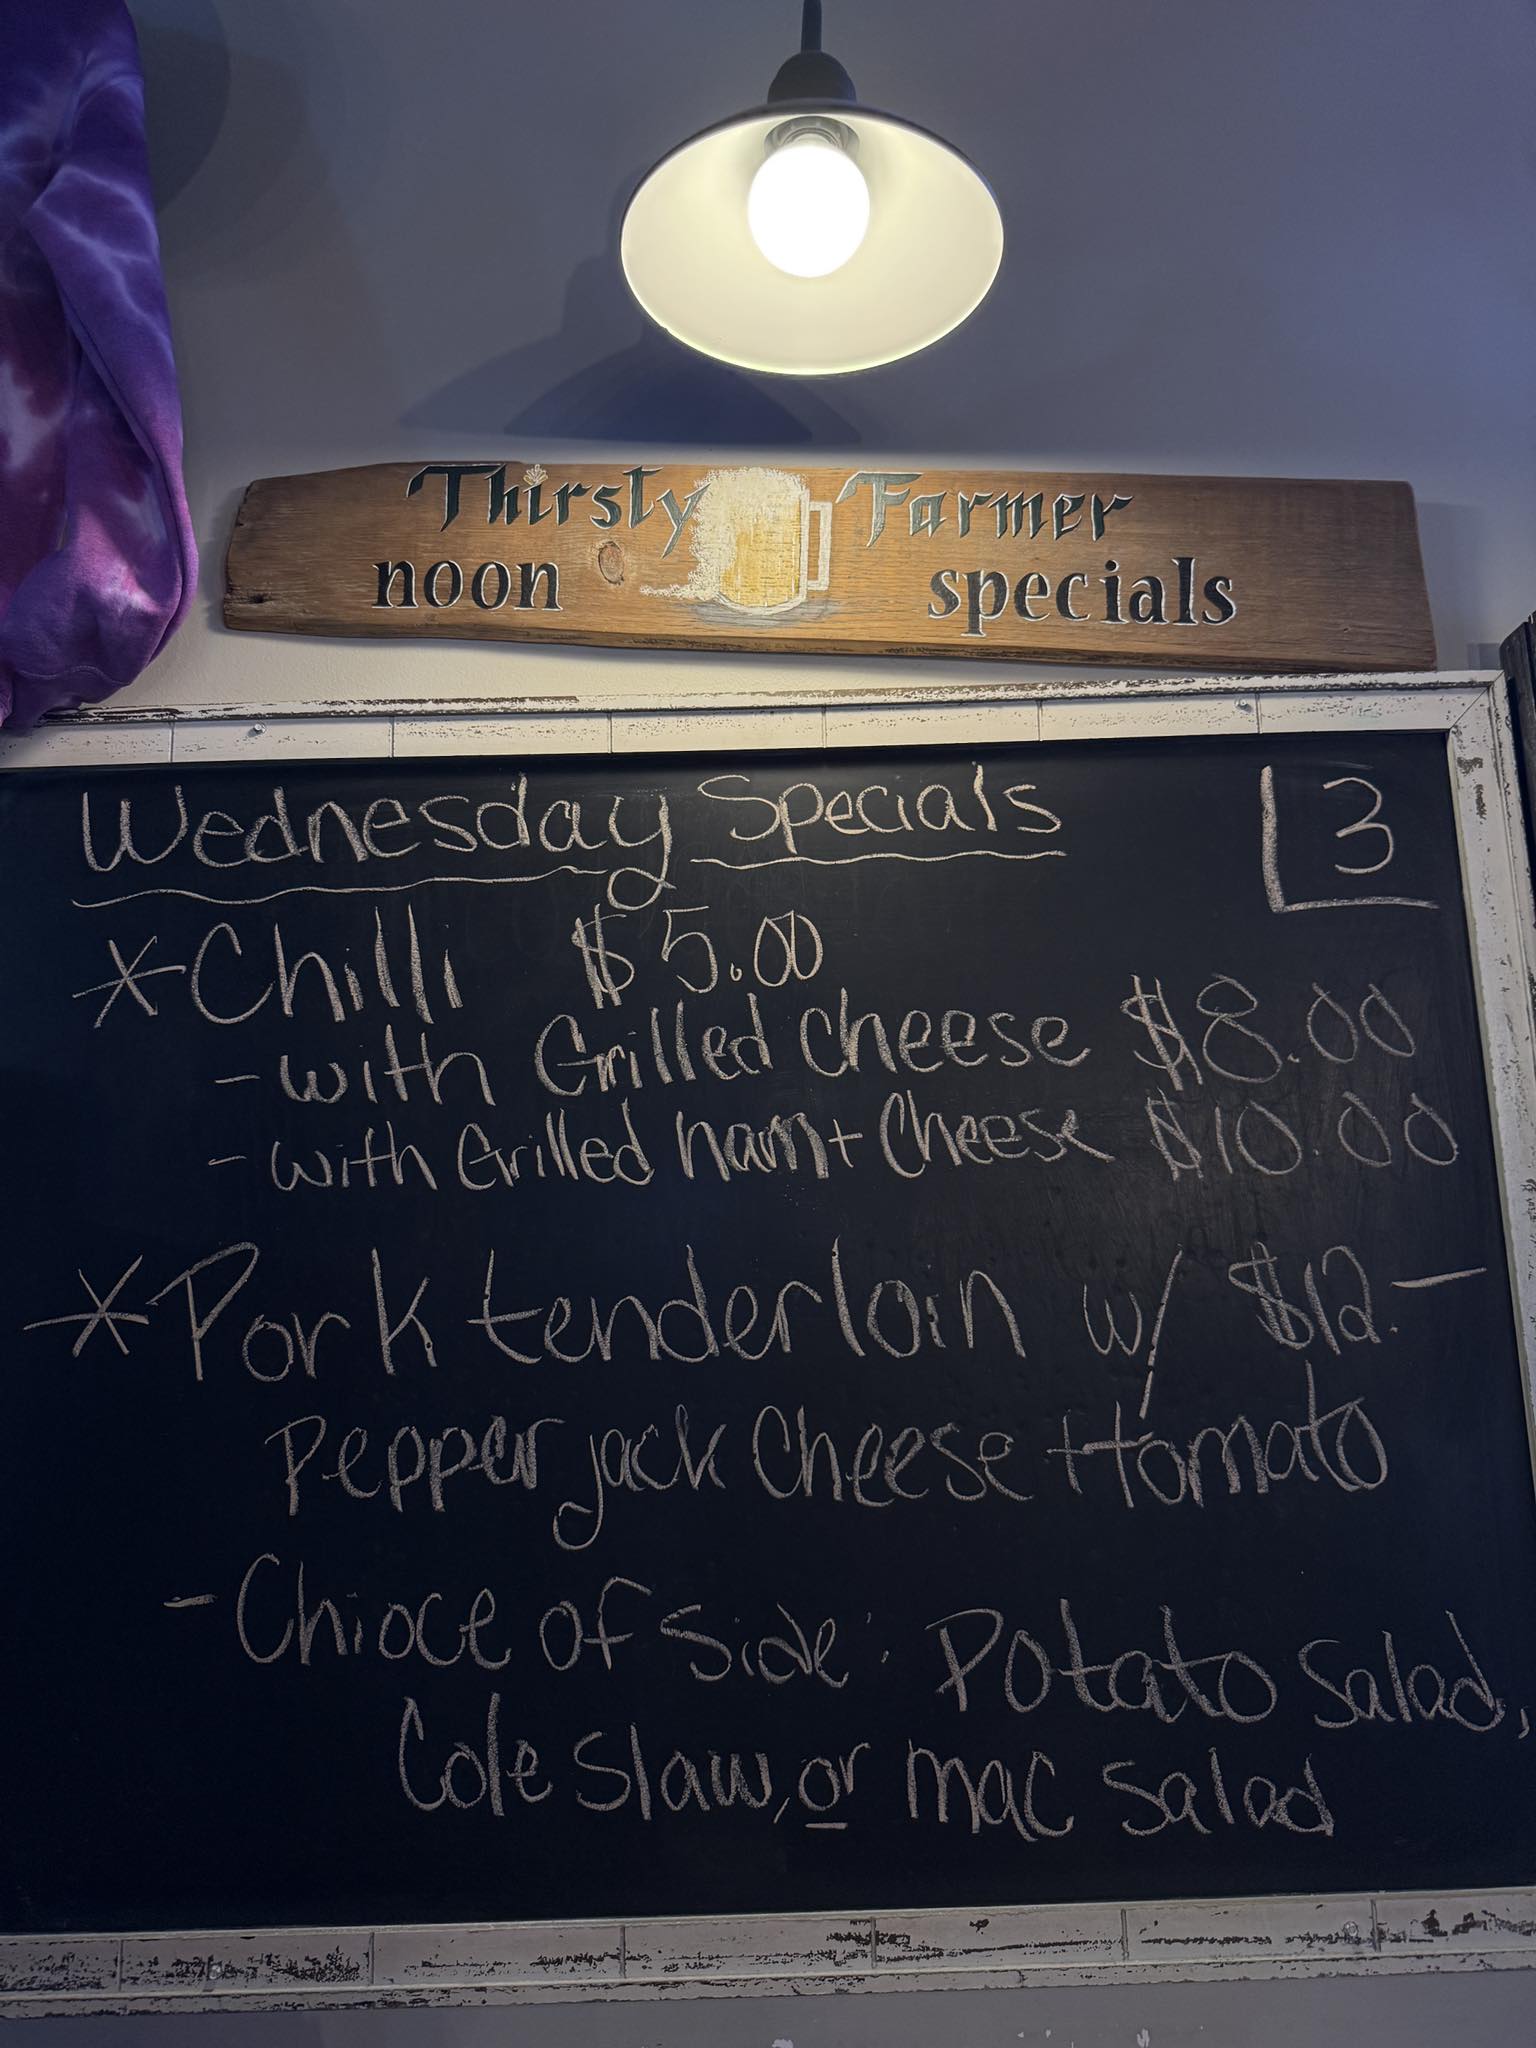 Thirsty Farmer
noon specials
Wednesday Specials
3
*Chilli $5.00
- with Grilled Cheese $8.00
- with Grilled ham + Cheese $10.00
*Pork tenderloin w/ $12.-
Pepper jack Cheese + tomato
- Chioce of side: Potato Salad,
Cole Slaw, or mac Salad